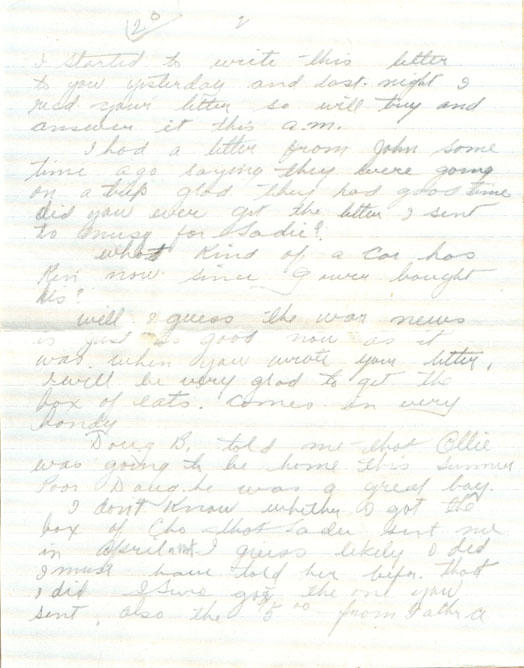 2
I started to write this letter
to you yesterday and last night I
recd your letter so will try and
answer it this a.m.
I had a letter from John some
time ago saying they were going
on a trip glad they had good time
did you ever get the letter I sent
to for Sadie?
what kind of a car has
Ken now since bought
his?
will I guess the war news
is just as good now as it
was when you wrote your letter,
I will be very glad to get the
box of eats. comes in very
handy
Doug B. told me that Ollie
was going to be home this summer
Poor Doug. he was a great boy.
I don't know whether I got the
box of Cho that Sadie sent me
in April I guess likely I did
I must have told her before that
I did I sure got the one you
sent, also the 5 00 from Father